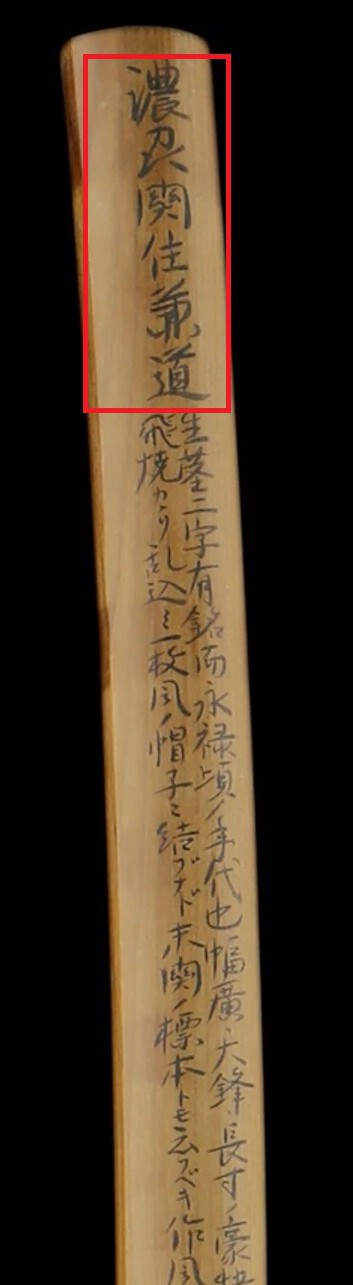 濃州関住兼道
生茎二字有銘而永禄頃ノ年代也幅廣大鋒長寸ノ豪快
飛焼カヽリ乱込ミ一枚風ノ帽子ニ結ブナド末関ノ標本トモ云フベキ作風